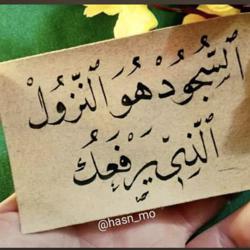 ٱلسُّجُودْ هُوَ ٱلنُّزُولْ
ٱلَّذِيْ يَرْفَعُكَ
@hasn_mo